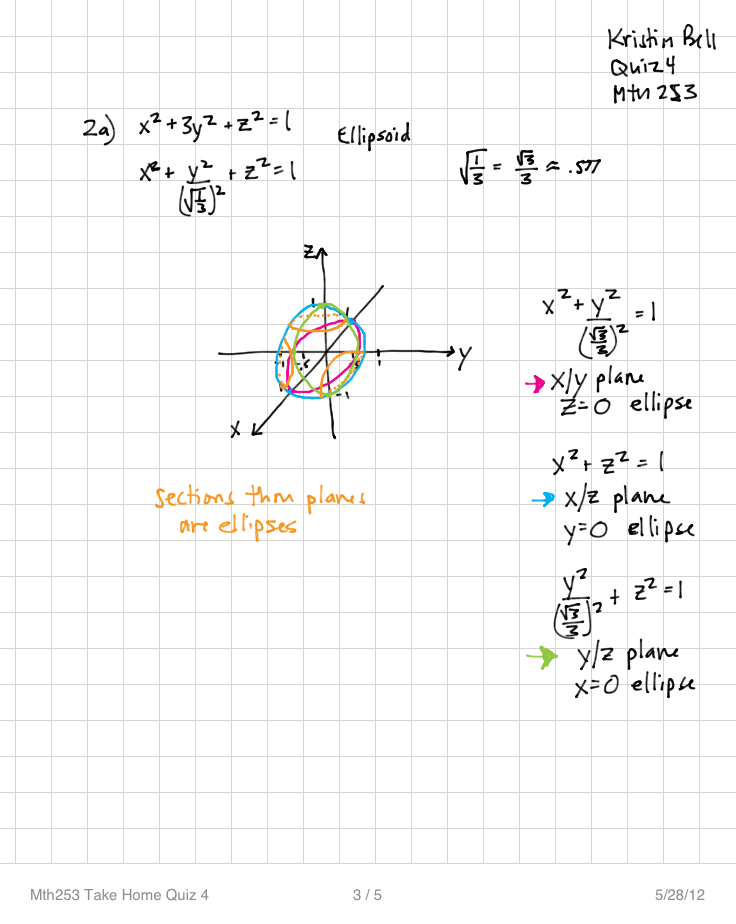 Kristin Bell
Quiz 4
Mth 253
2a) x² + 3y² + z² = 1
Ellipsoid
x² + y²/(√(1/3))² + z² = 1
√(1/3) = √3/3 ≈ .577
z
y
x
1
1
-1
-.5
.5
1
-1
x² + y²/(√3/3)² = 1
→ x/y plane
z=0 ellipse
x² + z² = 1
→ x/z plane
y=0 ellipse
y²/(√3/3)² + z² = 1
→ y/z plane
x=0 ellipse
Sections thru planes
are ellipses
Mth253 Take Home Quiz 4
3 / 5
5/28/12